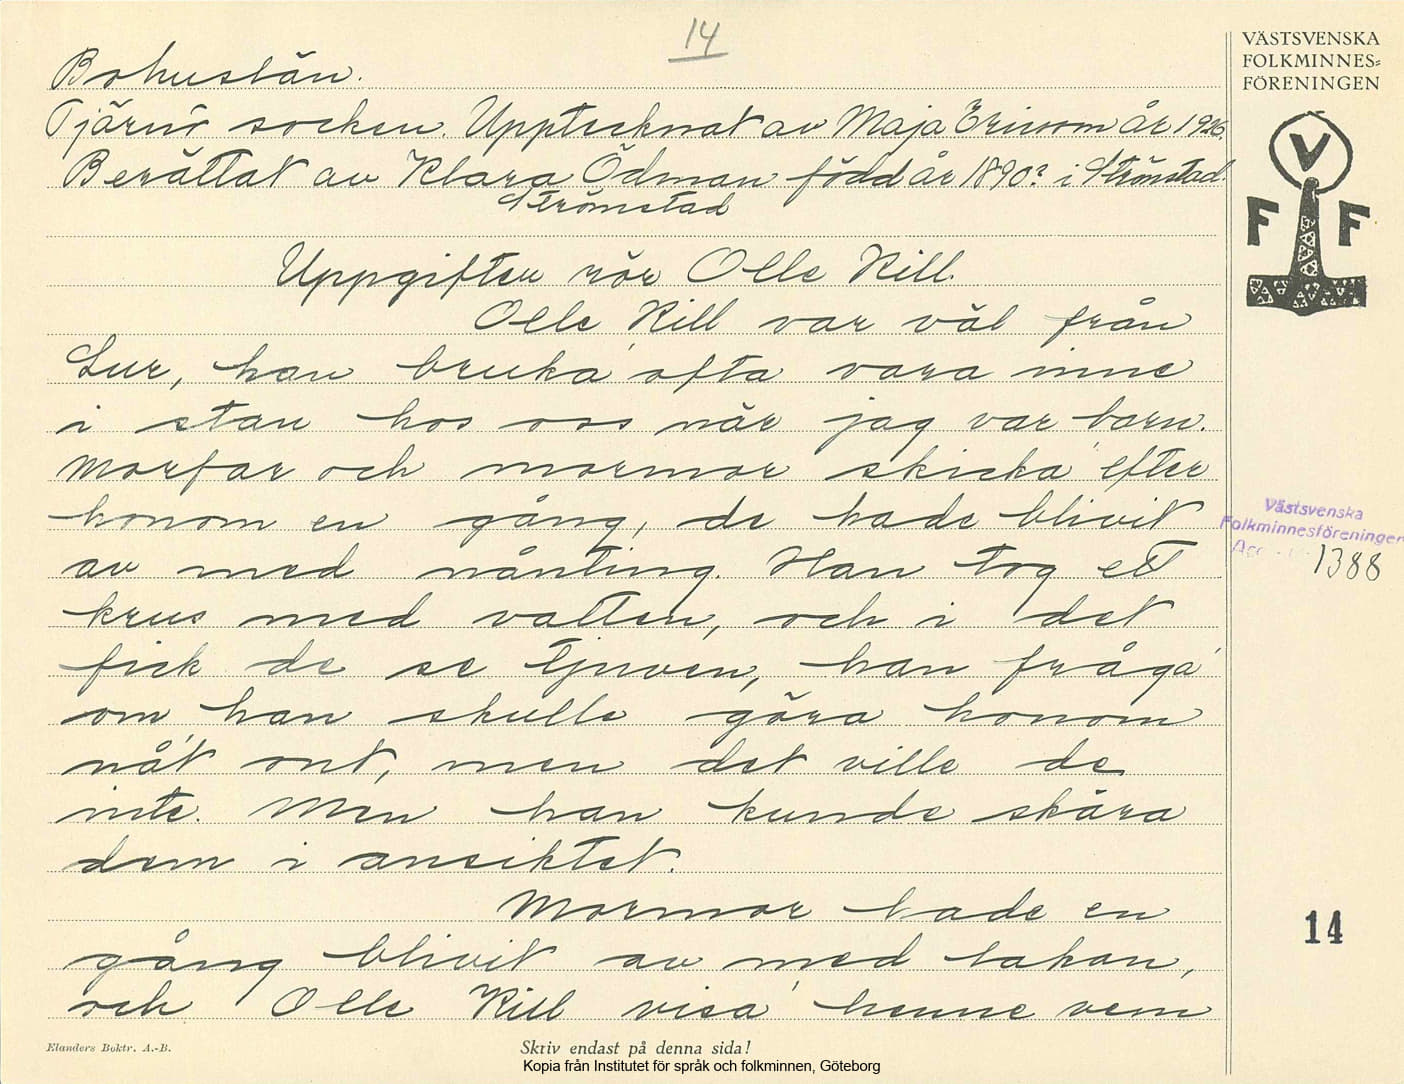 14
VÄSTSVENSKA
FOLKMINNES-
FÖRENINGEN
V
F F
Bohuslän.
Tjärnö socken. Upptecknat av Maja Ericson år 1926.
Berättat av Klara Ödman född år 1890? i Strömstad.
Strömstad
Uppgifter rör Olle Kill.
Olle Kill var väl från
Lur, han bruka' ofta vara inne
i stan hos oss när jag var barn.
Morfar och mormor skicka' efter
honom en gång, de hade blivit
av med nånting. Han tog ett
krus med vatten, och i det
fick de se tjuven, han fråga'
om han skulle göra honom
nå't ont, men det ville de
inte. Men han kunde skära
dem i ansiktet.
Mormor hade en
gång blivit av med lakan,
och Olle Kill visa' henne vem
Västsvenska
Folkminnesföreningen
Acc. 1388
14
Elanders Boktr. A.-B.
Skriv endast på denna sida!
Kopia från Institutet för språk och folkminnen, Göteborg